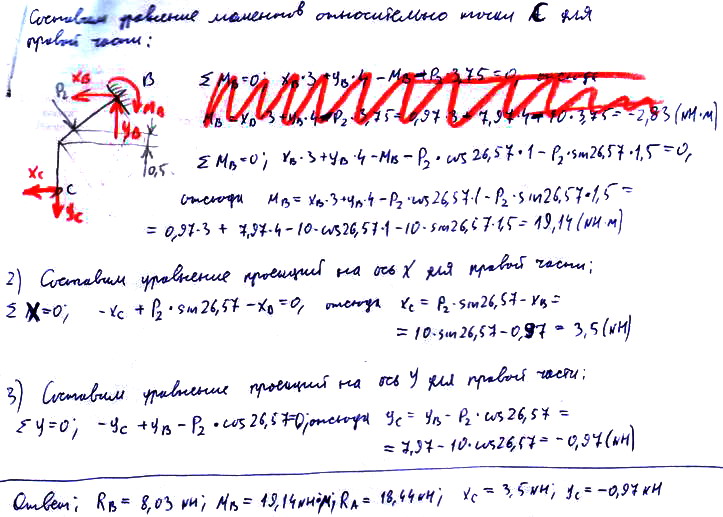 Составим уравнение моментов относительно точки C для
правой части:
XB
B
P2
MB
YB
0,5
XC
C
YC
Σ MB=0; XB·3+YB·4-MB-P2·3,75=0 отсюда
MB=XB·3+YB·4-P2·3,75=0,97·3+7,97·4-10·3,75=-2,83(кН·м)
Σ MB=0; XB·3+YB·4-MB-P2·cos26,57·1-P2·sin26,57·1,5=0,
отсюда MB=XB·3+YB·4-P2·cos26,57·1-P2·sin26,57·1,5=
=0,97·3+7,97·4-10·cos26,57·1-10·sin26,57·1,5=19,14(кН·м)
2) Составим уравнение проекций на ось X для правой части;
Σ X=0; -XC+P2·sin26,57-XB=0, отсюда XC=P2·sin26,57-XB=
=10·sin26,57-0,97=3,5(кН)
3) Составим уравнение проекций на ось Y для правой части:
Σ Y=0; -YC+YB-P2·cos26,57=0; отсюда YC=YB-P2·cos26,57=
=7,97-10·cos26,57=-0,97(кН)
Ответ; RB=8,03кН; MB=19,14кН·м; RA=18,44кН; XC=3,5кН; YC=-0,97кН